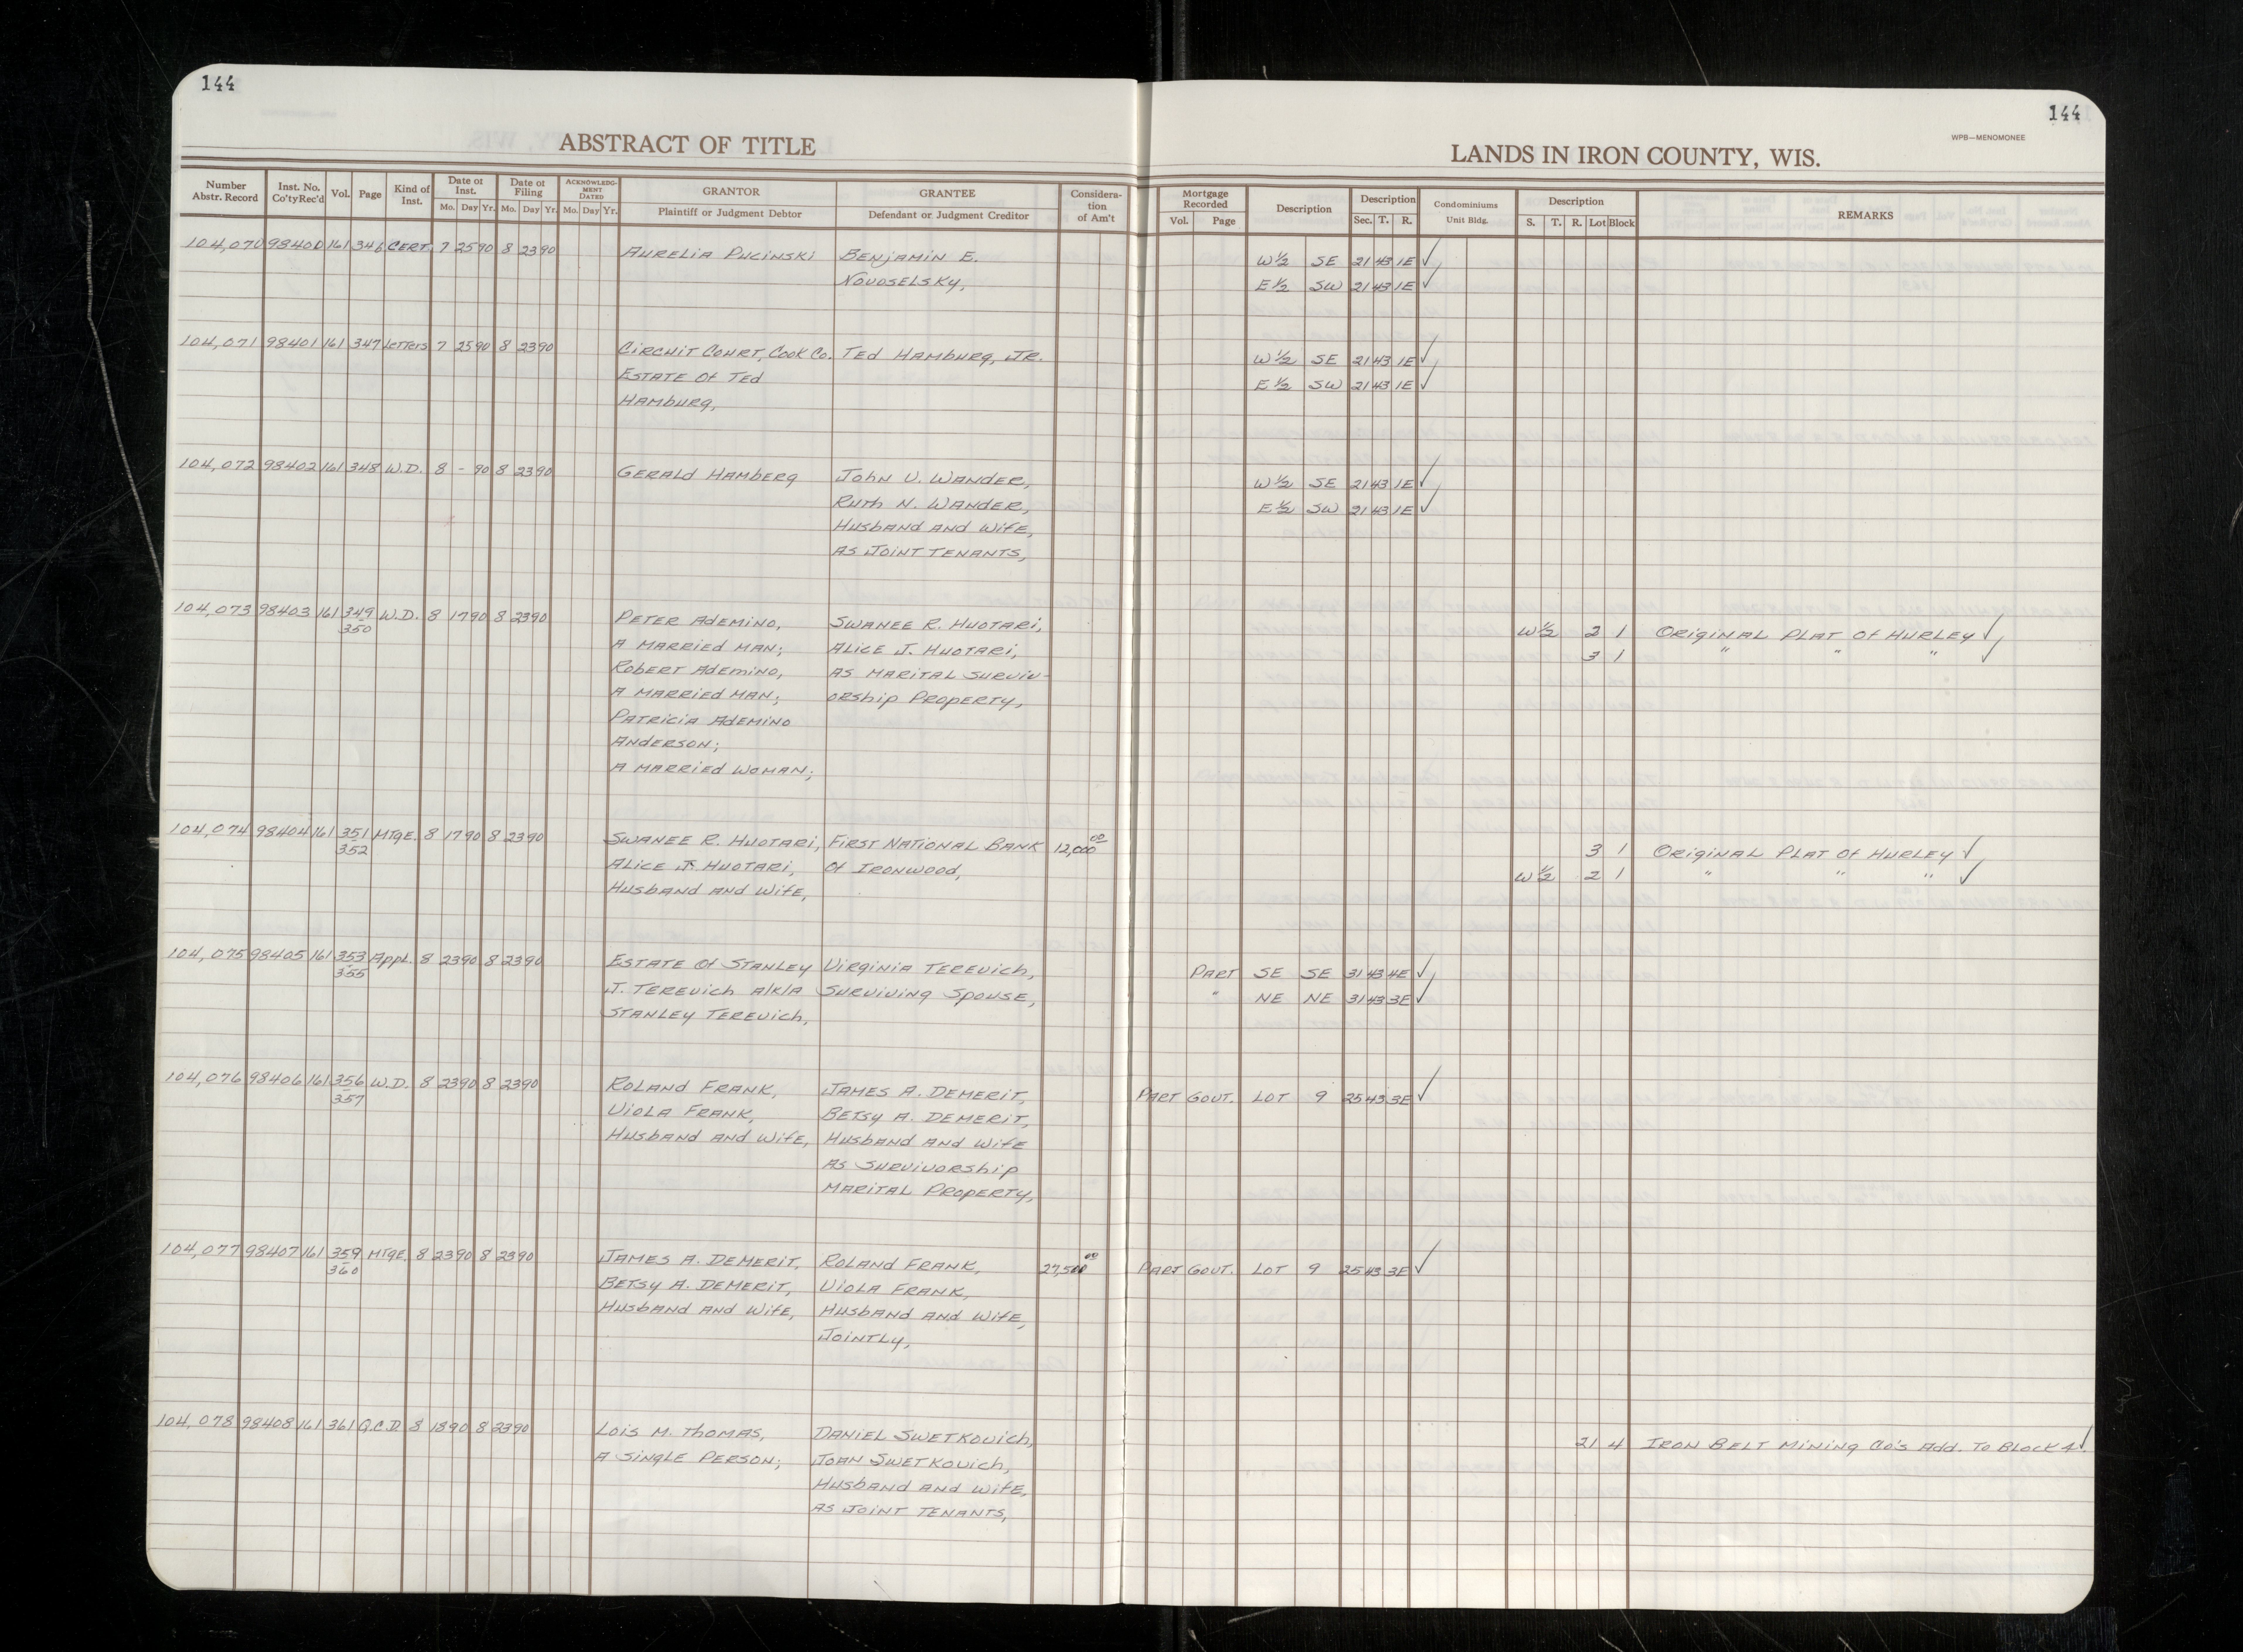 144
144
WPB—MENOMONEE
ABSTRACT OF TITLE
LANDS IN IRON COUNTY, WIS.
Number Abstr. Record | Inst. No. Co'ty Rec'd | Vol. | Page | Kind of Inst. | Date of Inst. Mo. Day Yr. | Date of Filing Mo. Day Yr. | ACKNOWLEDGMENT DATED Mo. Day Yr. | GRANTOR Plaintiff or Judgment Debtor | GRANTEE Defendant or Judgment Creditor | Consideration of Am't | Mortgage Recorded Vol. Page | Description | Description Sec. T. R. | Condominiums Unit Bldg. | Description S. T. R. Lot Block | REMARKS
104,070 98400 161 346 CERT. 7 25 90 8 23 90 AURELIA PUCINSKI BENJAMIN E. W½ SE 21 43 1E ✓
NOVOSELSKY, E½ SW 21 43 1E ✓
104,071 98401 161 347 Letters 7 25 90 8 23 90 CIRCUIT COURT, COOK CO. TED HAMBURG, JR. W½ SE 21 43 1E ✓
ESTATE OF TED E½ SW 21 43 1E ✓
HAMBURG,
104,072 98402 161 348 W.D. 8 - 90 8 23 90 GERALD HAMBERG JOHN V. WANDER, W½ SE 21 43 1E ✓
RUTH N. WANDER, E½ SW 21 43 1E ✓
HUSBAND AND WIFE,
AS JOINT TENANTS,
104,073 98403 161 349 W.D. 8 17 90 8 23 90 PETER ADEMINO, SWANEE R. HUOTARI, W½ 2 1 ORIGINAL PLAT OF HURLEY ✓
350 A MARRIED MAN; ALICE J. HUOTARI, 3 1 " " " ✓
ROBERT ADEMINO, AS MARITAL SURVIV-
A MARRIED MAN; ORSHIP PROPERTY,
PATRICIA ADEMINO
ANDERSON;
A MARRIED WOMAN;
104,074 98404 161 351 MTGE. 8 17 90 8 23 90 SWANEE R. HUOTARI, FIRST NATIONAL BANK 12,000 00 3 1 ORIGINAL PLAT OF HURLEY ✓
352 ALICE J. HUOTARI, OF IRONWOOD, W½ 2 1 " " " ✓
HUSBAND AND WIFE,
104,075 98405 161 353 APPL. 8 23 90 8 23 90 ESTATE OF STANLEY VIRGINIA TEREVICH, PART SE SE 31 43 4E ✓
355 J. TEREVICH A/K/A SURVIVING SPOUSE, " NE NE 31 43 3E ✓
STANLEY TEREVICH,
104,076 98406 161 356 W.D. 8 23 90 8 23 90 ROLAND FRANK, JAMES A. DEMERIT, PART GOVT. LOT 9 25 43 3E ✓
357 VIOLA FRANK, BETSY A. DEMERIT,
HUSBAND AND WIFE, HUSBAND AND WIFE
AS SURVIVORSHIP
MARITAL PROPERTY,
104,077 98407 161 359 MTGE. 8 23 90 8 23 90 JAMES A. DEMERIT, ROLAND FRANK, 27,500 00 PART GOVT. LOT 9 25 43 3E ✓
360 BETSY A. DEMERIT, VIOLA FRANK,
HUSBAND AND WIFE, HUSBAND AND WIFE,
JOINTLY,
104,078 98408 161 361 Q.C.D. 8 18 90 8 23 90 LOIS M. THOMAS, DANIEL SWETKOVICH, 21 4 IRON BELT MINING CO'S ADD. TO BLOCK 4 ✓
A SINGLE PERSON; JOAN SWETKOVICH,
HUSBAND AND WIFE,
AS JOINT TENANTS,